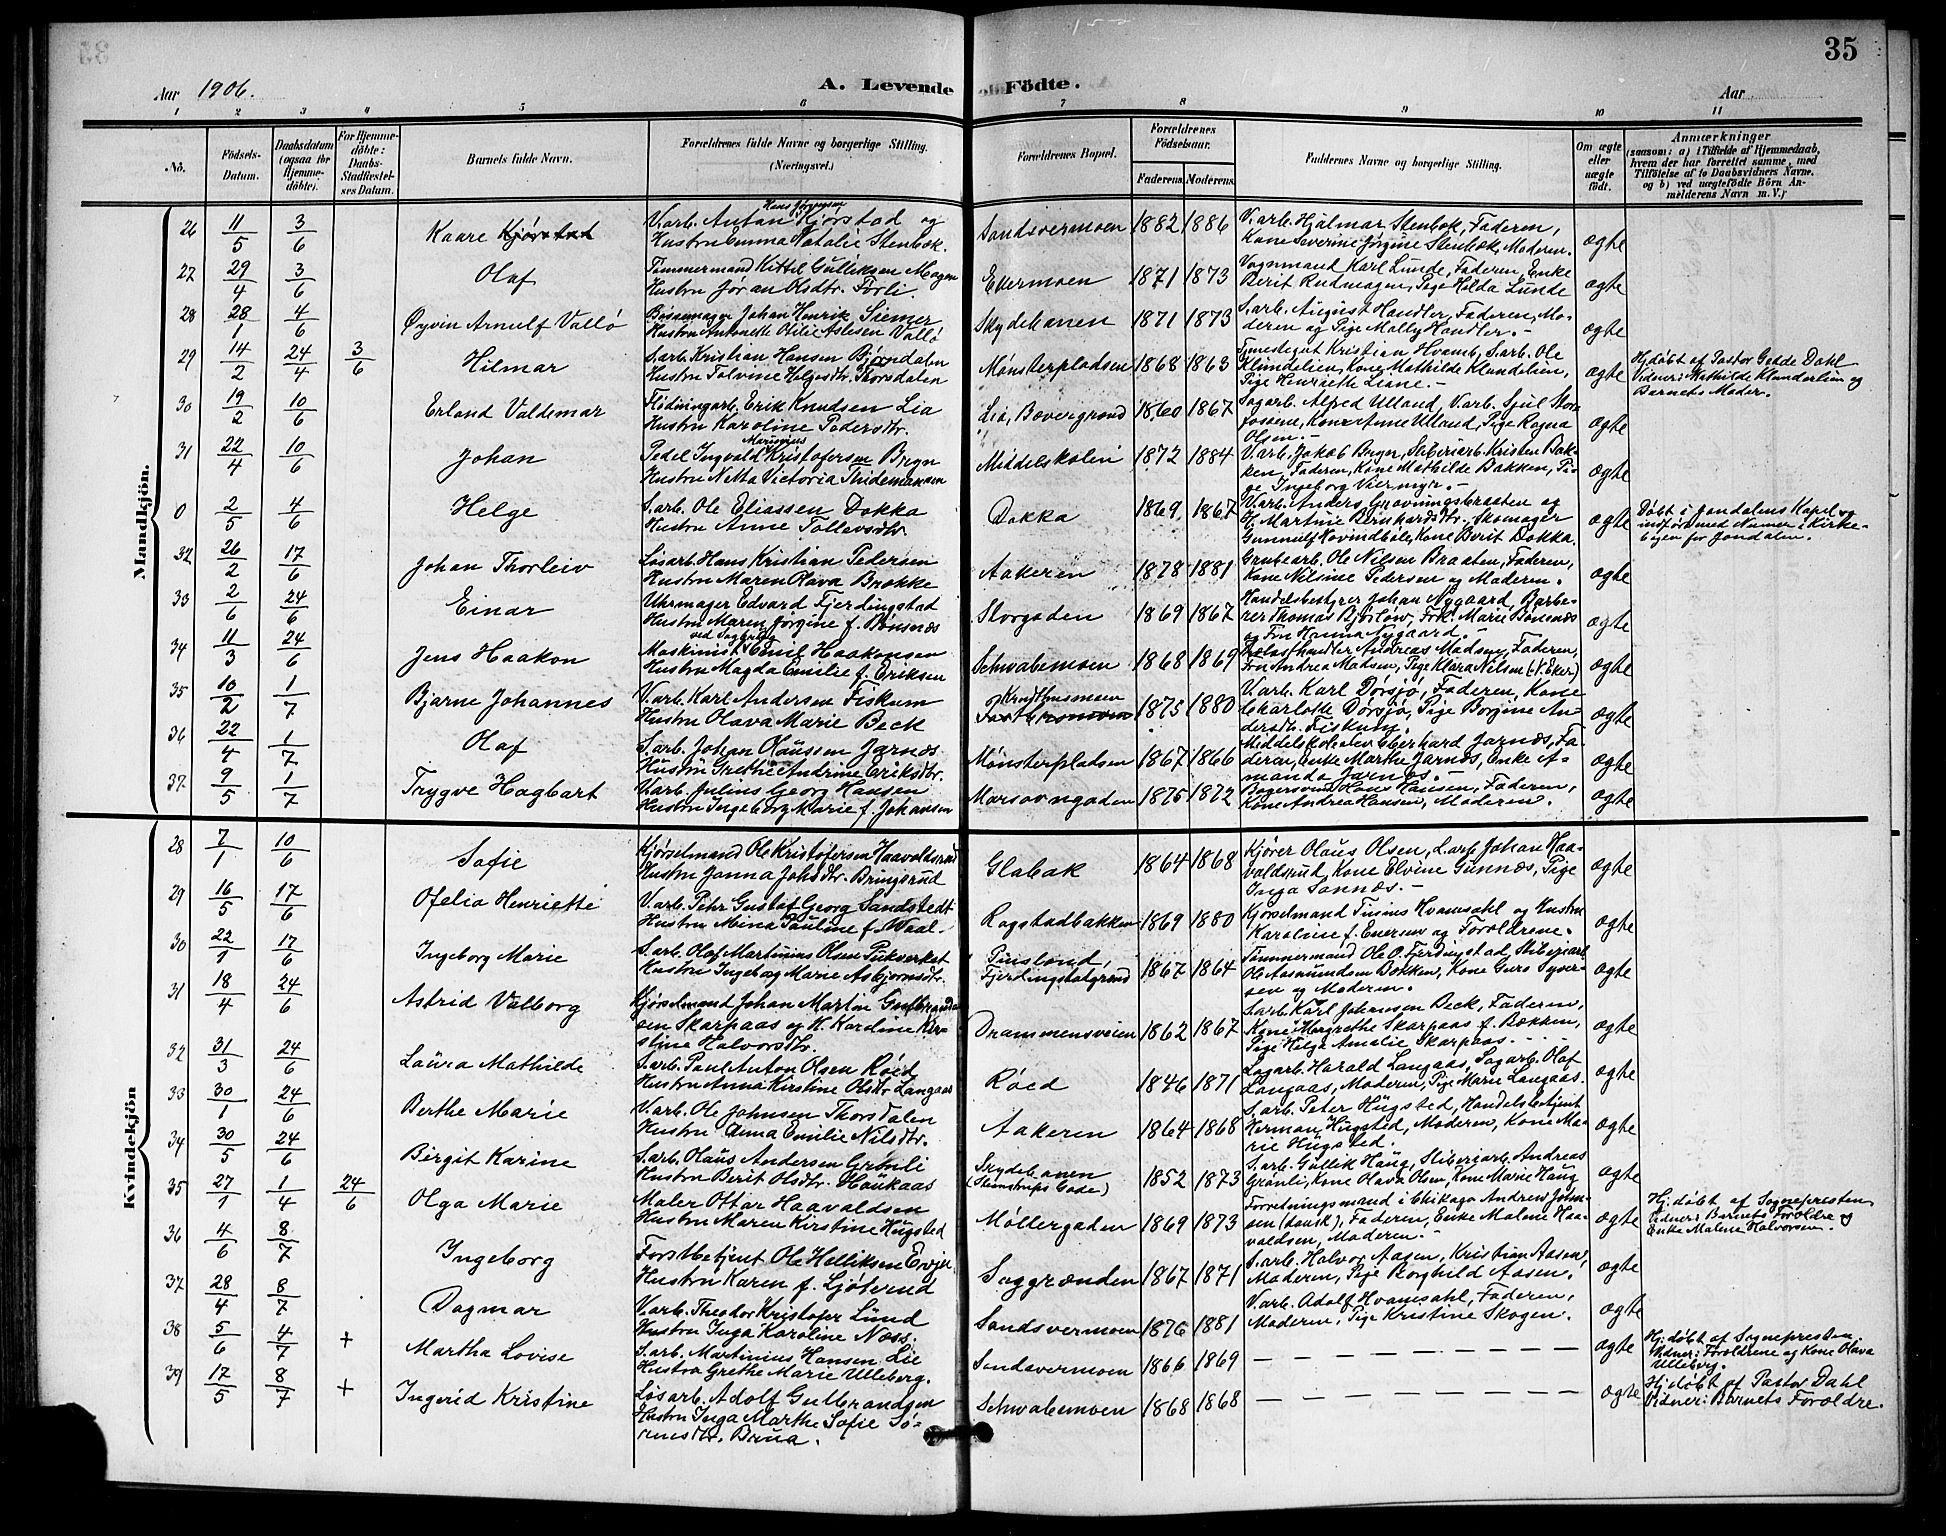 35
Aar 1906.
A. Levende Födte.
Aar
1 2 3 4 5 6 7 8 9 10 11
No.
Födsels-Datum.
Daabsdatum (ogsaa for Hjemme-döbte).
For Hjemme-döbte: Daabs-Stadfæstel-ses Datum.
Barnets fulde Navn.
Forældrenes fulde Navne og borgerlige Stilling. (Næringsvei.)
Forældrenes Bopæl.
Forældrenes Födselsaar.
Faderens. Moderens.
Faddernes Navne og borgerlige Stilling.
Om ægte eller uægte födt.
Anmærkninger
(saasom: a) i Tilfælde af Hjemmedaab, hvem der har forrettet samme, med Tilföielse af to Daabsvidners Navne. og b) ved uægtefödte Börn An-melderens Navn m. V.)
Mandkjön.
26 11/5 3/6 Kaare Kjörstad
V.arb. Anton Hans Jörgensen Kjörstad og
Hustru Emma Natalie Stenbök.
Sandsvermoen 1882 1886
V.arb. Hjalmar Stenbök, Faderen,
Kone Severine Jörgine Stenbök, Moderen.
ægte
27 29/4 3/6 Olaf
Tömmermand Kittil Gulliksen Mogen
Hustru Jöran Olsdtr. Forli
Ekermoen 1871 1873
Vognmand Karl Lunde, Faderen, Enke
Berit Rudmogen, Pige Hilda Lunde
ægte
28 28/1 4/6 Øyvin Arnulf Vallö
Bössemager Johan Henrik Siemer
Hustru Antonette Otilie Aslesen Vallö
Skydebanen 1871 1873
S.arb. August Handler, Faderen, Mo-
deren og Pige Molly Handler.-
ægte
29 14/2 24/4 3/6 Hilmar
S.arb. Kristian Hansen Björndalen
Hustru Tolvine Helgesdtr. Thorsdalen
Mönsterpladsen 1868 1863
Tjenestegut Kristian Hvamb, S.arb. Ole
Klundelien, Kone Mathilde Klundelien,
Pige Henriette Liane.-
ægte
Hjdöbt af Pastor Gedde Dahl
Vidner: Mathilde Klunderlien og
Barnets Moder.
30 19/2 10/6 Erland Valdemar
Flödningarb. Erik Knudsen Lia
Hustru Karoline Pedersdtr.
Lia, Bævergrænd 1860 1867
Sagarb. Alfred Ulland, V.arb. Sjul Stor-
fossene, Kone Anne Ulland, Pige Ragna
Olsen.-
ægte
31 22/4 10/6 Johan
Pedel Ingvald Marinius Kristofersen Bryn
Hustru Netta Victoria Thidemansen
Middelskolen 1872 1884
V.arb. Jakob Berger, Stiberiarb. Kristen Bak-
ken, Faderen, Kone Mathilde Bakken, Pi-
ge Ingeborg Viermyr.-
ægte
0 2/5 4/6 Helge
S.arb. Ole Eliassen Dokka
Hustru Anne Tollevsdtr.
Dokka 1869 1867
V.arb. Anders Gravningsbraaten og
H. Martine Bernhardsdtr. Skomager
Gunnulf Kovindbøle, Kone Berit Dokka.
ægte
Döbt i Jondalens Kapel og
indfört med Numer i Kirke-
bogen for Jondalen.
32 26/2 17/6 Johan Thorleiv
Lösarb. Hans Kristian Pedersen
Hustru Maren Olava Brække
Aakeren 1878 1881
Grubearb. Ole Nilsen Braaten, Faderen,
Kone Nilsine Pedersen og Moderen.
ægte
33 2/6 24/6 Einar
Uhrmager Edvard Fjerdingstad
Hustru Maren Jörgine f. Bönsnæs
Storgaden 1869 1867
Handelsbestyrer Johan Nygaard, Barbe-
rer Thomas Bjerlöw, Frk. Marie Bönsnæs
og Fru Hanna Nygaard.-
ægte
34 11/3 24/6 Jens Haakon
Maskinist ved Sagbrug Emil Haakonsen
Hustru Magda Emilie f. Eriksen
Schwabemoen 1868 1869
Andreas Madsen, Faderen,
Fru Andrea Madsen, Pige Klara Nilsen (V. Eker)
ægte
35 10/2 1/7 Bjarne Johannes
V.arb. Karl Andersen Fiskum
Hustru Olava Marie Beck
Krudthusmoen 1875 1880
V.arb. Karl Dörsjö, Faderen, Kone
Charlotte Dörsjö, Pige Borgine An-
dersdtr. Fiskum.
ægte
36 22/4 1/7 Olaf
S.arb. Johan Olaussen Jarnæs
Hustru Grethe Andrine Eriksdtr.
Mönsterpladsen 1867 1866
Middelskolelev Eberhard Jarnæs, Fa-
deren, Enke Marthe Jarnæs, Enke A-
manda Jarnæs.-
ægte
37 9/5 1/7 Trygve Hagbart
V.arb. Julius Georg Hansen
Hustru Ingeborg Marie f. Johansen
Marsovngaden 1875 1872
Bagersvend Hans Hansen, Faderen,
Kone Andrea Hansen, Moderen.
ægte
Kvindekjön
28 7/1 10/6 Sofie
Kjörselmand Ole Kristofersen Haavaldsrud
Hustru Janna Johsdtr. Bringsrud
Glabak 1864 1868
Kjörer Olaus Olsen, L.arb. Johan Haa-
valdsrud, Kone Elvine Gunnæs, Pige
Inga Sannæs.-
ægte
29 16/5 17/6 Ofelia Henriette
V.arb. Pehr Gustaf Georg Sandstedt
Hustru Mina Pauline f. Waal.
Rogstadbakken 1869 1880
Kjörselmand Tinius Hvamsahl og Hustru
Karoline f. Enersen og Forældrene.
ægte
30 22/1 17/6 Ingeborg Marie
S.arb. Olaf Martinius Olsen Pukverket
Hustru Ingeborg Marie Asbjörnsdtr.
Pinslond,
Fjerdingstadgrund 1867 1864
Tömmermand Ole O. Fjerdingstad, Stiberiarb.
Ole Aasmundsen Bækken, Kone Guro Syver-
sen og Moderen.
ægte
31 18/4 24/6 Astrid Valborg
Kjörselmand Johan Martin Gulbrand-
sen Skarpaas og H. Karoline Kir-
stine Halvorsdtr.
Drammensveien 1862 1867
S.arb. Karl Johansen Beck, Faderen,
Kone Mergrethe Skarpaas f. Bækken,
Pige Helga Amalie Skarpaas.
ægte
32 31/3 24/6 Laura Mathilde
S.arb. Paul Anton Olsen Röed
Hustru Anna Kirstine Olsdtr. Langaas
Röed 1846 1871
Lagarb. Harald Langaas, Sagarb. Olaf
Langaas, Moderen, Pige Marie Langaas.
ægte
33 30/1 24/6 Berthe Marie
V.arb. Ole Johnsen Thorsdalen
Hustru Anna Emilie Nilsdtr.
Aakeren 1864 1868
S.arb. Peter Hugsted, Handelsbetjent
Herman Hugsted, Moderen, Kone Ma-
rie Hugsted.
ægte
34 30/5 24/6 Birgit Karine
S.arb. Olaus Andersen Grönli
Hustru Berit Olsdtr. Haukaas
Skydebanen
(Stenstrups Gade) 1852 1873
S.arb. Gullik Haug, Stiberiarb. Andreas
Grönli, Kone Olava Olsen, Kone Marie Haug
ægte
35 27/1 1/4 24/6 Olga Marie
Maler Ottar Haavaldsen
Hustru Maren Kirstine Hugsted
Möllergaden 1869 1873
Forretningsmand i Chikago Andrew John-
sen (dansk), Faderen, Enke Malene Haa-
valdsen, Moderen.-
ægte
Hj.döbt af Sognepresten
Vidner: Barnets Forældre og
Enke Malene Halvorsen.
36 4/6 8/7 Ingeborg
Forstbetjent Ole Helliksen Ervje
Hustru Karen f. Ljöterud
Saggrænden 1867 1871
S.arb. Halvor Aasen, Kristian Aasen,
Moderen, Pige Borghild Aasen.
ægte
37 28/4 8/7 Dagmar
V.arb. Theodor Kristofer Lund
Hustru Inga Karoline Næss.
Sandsvermoen 1876 1881
V.arb. Adolf Hvamsahl, Faderen,
Moderen, Pige Kristine Skogen.
ægte
38 5/6 4/7 + Martha Lovise
S.arb. Martinius Hansen Lie
Hustru Grethe Marie Ulleberg.
Sandsvermoen 1866 1869
— — — — — — — —
ægte
Hj.döbt af Sognepresten.
Vidner: Forældrene og Kone Olava
Ulleberg.
39 17/5 8/7 + Ingerid Kristine
Lösarb. Adolf Gulbrandsen
Hustru Inga Marthe Sofie Sö-
rensdtr. Brua.
Schwabemoen 1868 1868
— — — — — — — —
ægte
Hj.döbt af Pastor Dahl
Vidner: Barnets Forældre.